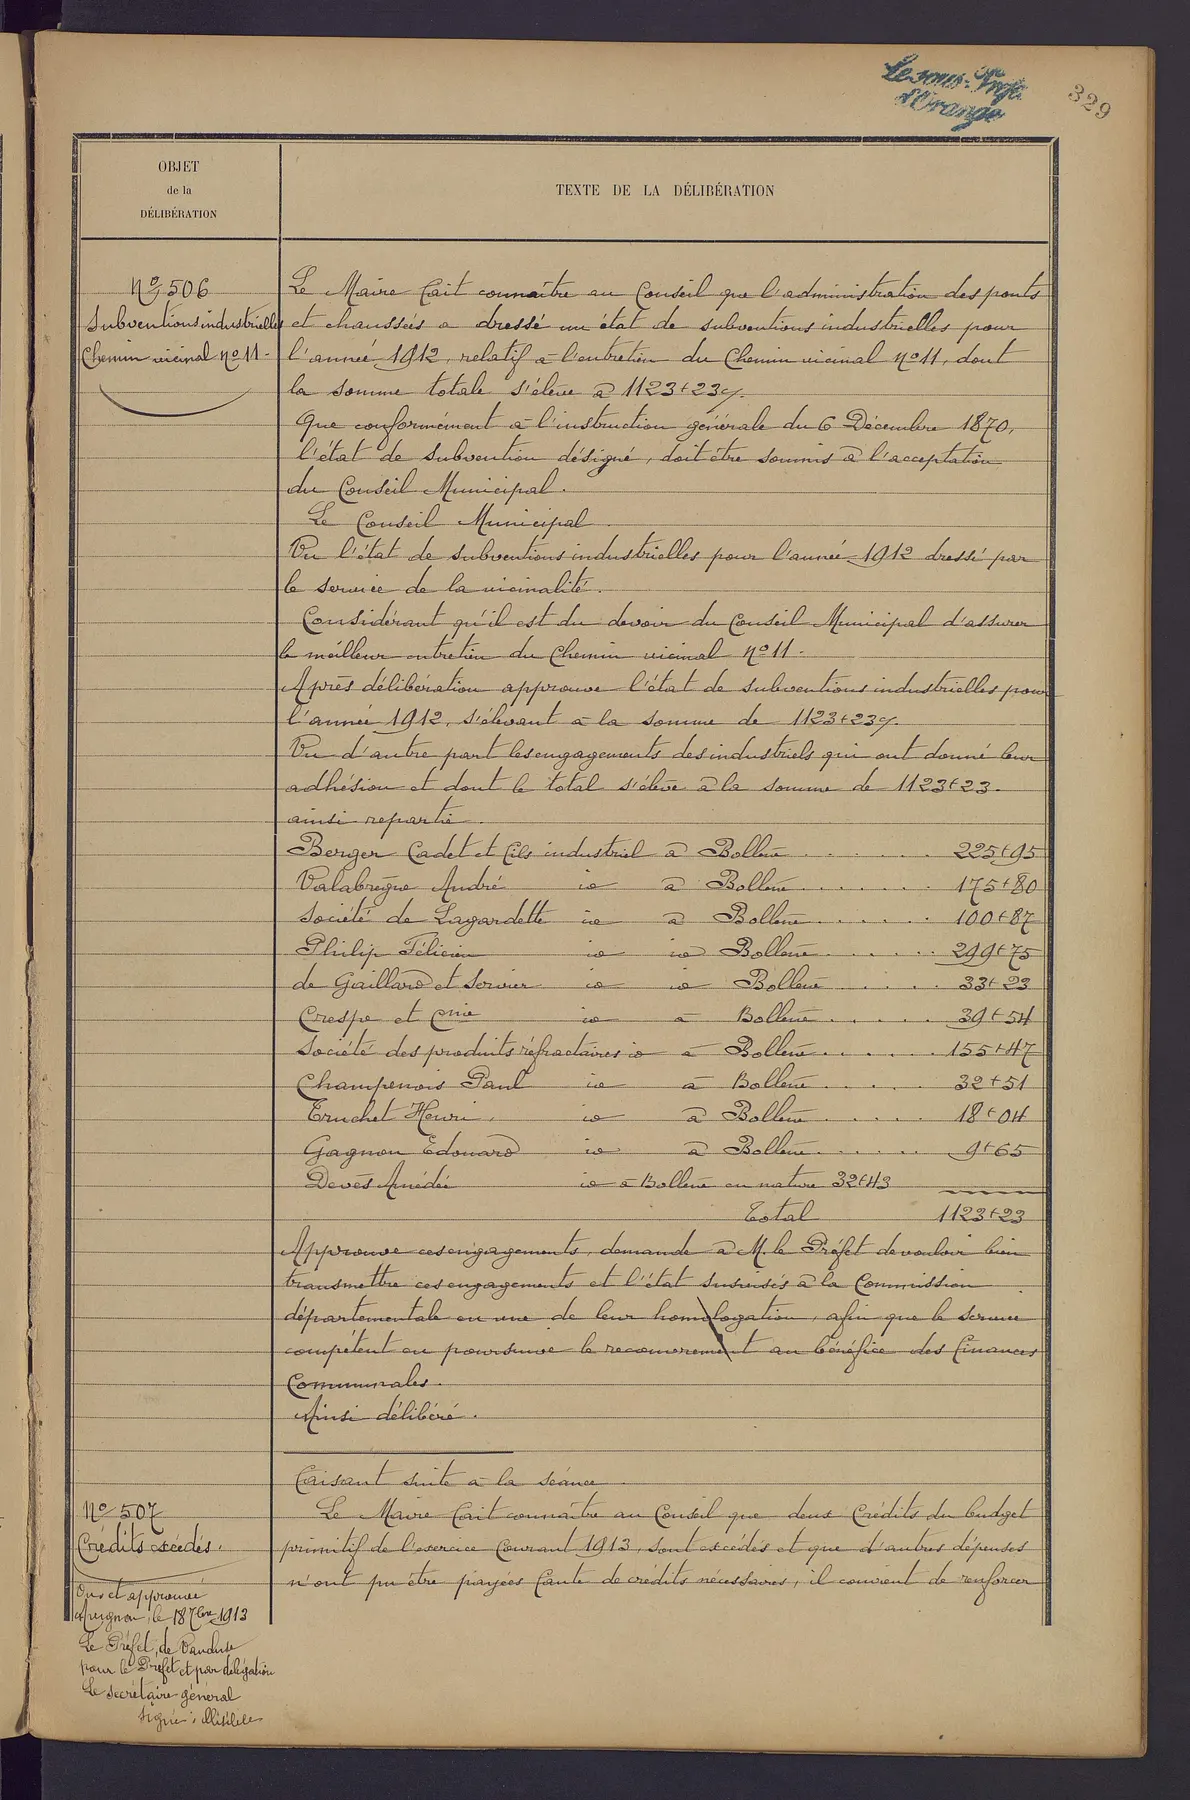 Le sous-Préfet
d'Orange
329
OBJET
de la
DÉLIBÉRATION
TEXTE DE LA DÉLIBÉRATION
Nº 506
Subventions industrielles
Chemin vicinal nº 11.
Le Maire fait connaître au Conseil que l'administration des ponts
et chaussées a dressé un état de subventions industrielles pour
l'année 1912, relatif à l'entretien du Chemin vicinal nº 11, dont
la somme totale s'élève à 1123f23c.
Que conformément à l'instruction générale du 6 Décembre 1870,
l'état de subvention désigné, doit être soumis à l'acceptation
du Conseil Municipal.
Le Conseil Municipal
Vu l'état de subventions industrielles pour l'année 1912 dressé par
le service de la vicinalité.
Considérant qu'il est du devoir du Conseil Municipal d'assurer
le meilleur entretien du Chemin vicinal nº 11.
Après délibération approuve l'état de subventions industrielles pour
l'année 1912, s'élevant à la somme de 1123f23c.
Vu d'autre part les engagements des industriels qui ont donné leur
adhésion et dont le total s'élève à la somme de 1123f23.
ainsi repartie.
Berger Cadet et fils industriel à Bollène . . . . . . 225f95
Valabrègue André id à Bollène . . . . . . 175f80
Société de Lagardette id à Bollène . . . . . . 100f87
Philip Félicien id id Bollène . . . . . . 299f75
de Gaillard et Servier id id Bollène . . . . . 33f23
Crespo et Cnie id à Bollène . . . . . 39f54
Société des produits réfractaires id à Bollène . . . . . . 155f47
Champenois Paul id à Bollène . . . . . 32f51
Truchet Henri, id à Bollène . . . . . 18f04
Gagnon Edouard id à Bollène . . . . . . 9f65
Devès Amédée id à Bollène en nature 32f43
Total 1123f23
Approuve ces engagements, demande à M. le Préfet de vouloir bien
transmettre ces engagements et l'état susvisés à la Commission
départementale en vue de leur homologation, afin que le service
compétent en poursuive le recouvrement au bénéfice des finances
Communales.
Ainsi délibéré.
Faisant suite à la séance.
Nº 507
Crédits excédés.
Le Maire fait connaître au Conseil que deux Crédits du budget
primitif de l'exercice Courant 1913, sont excédés et que d'autres dépenses
n'ont pu être payées faute de crédits nécessaires, il convient de renforcer
Vu et approuvé
Avignon, le 18 7bre 1913
Le Préfet, de Vaucluse
pour le Préfet et par délégation
Le secrétaire général
signé :